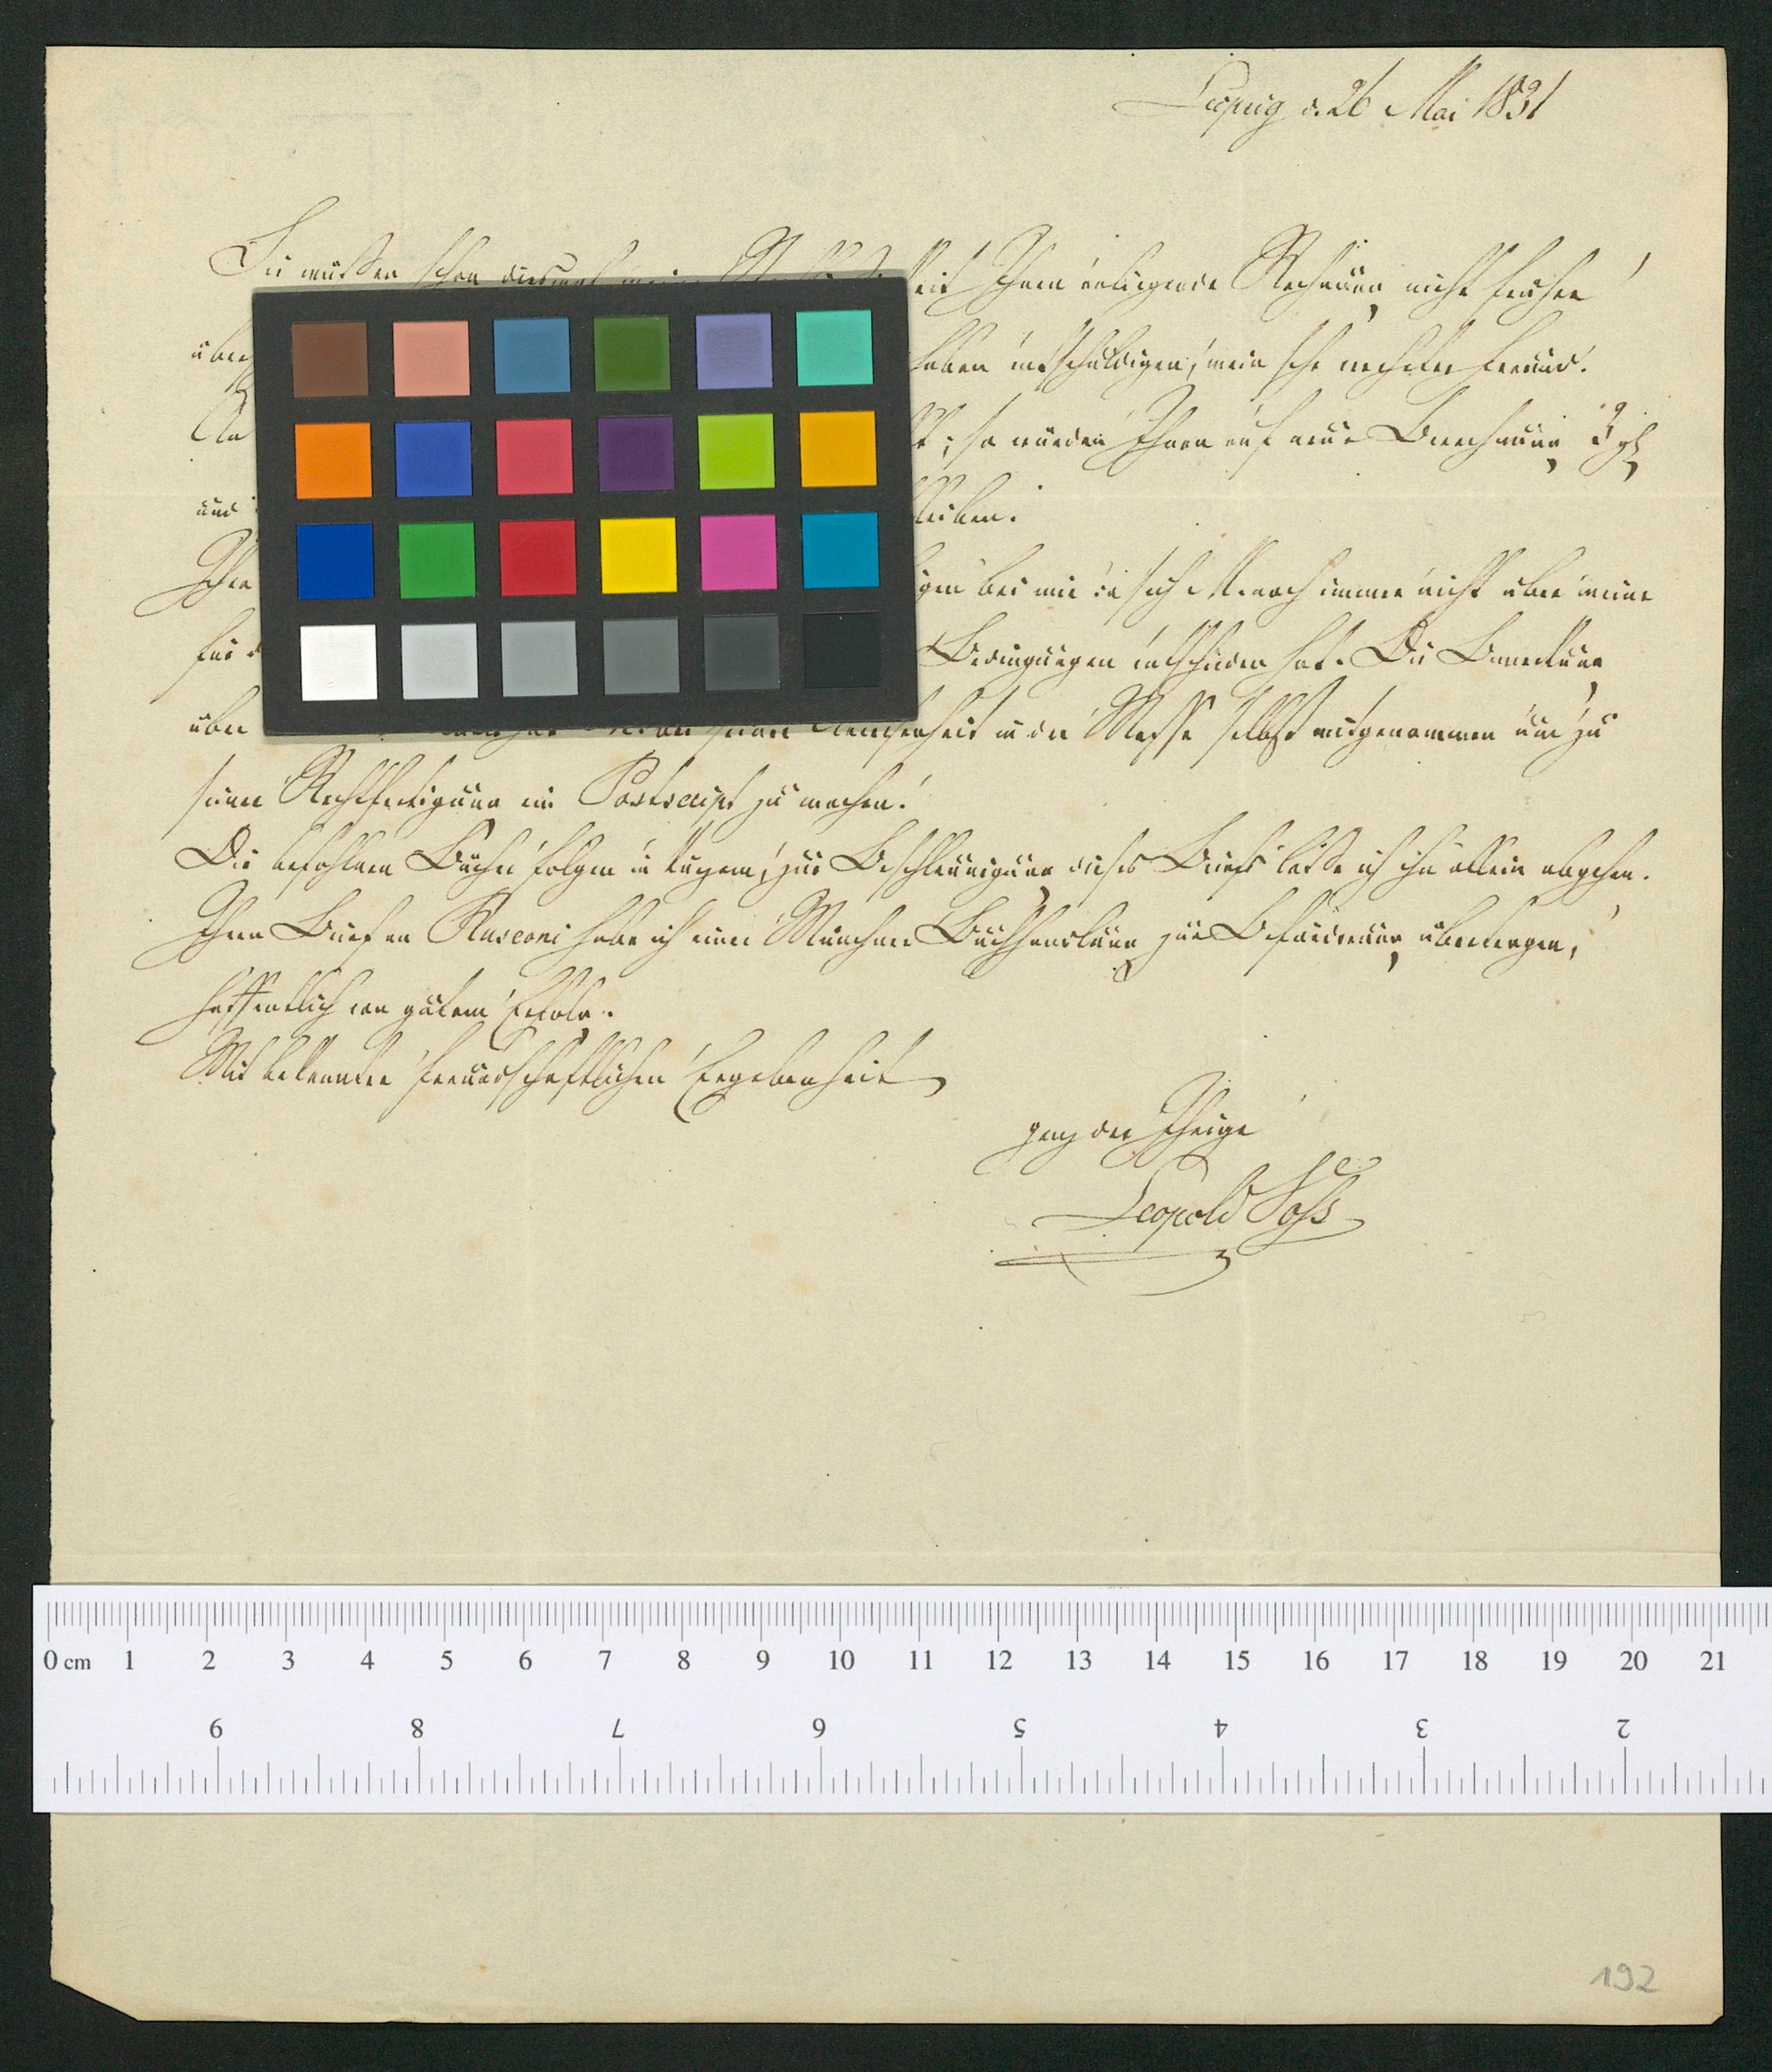 Leipzig d. 26 Mai 1831
Sie müssen schon diesmal Ihnen einliegende Rechnung nicht früher
haben entschuldigen, mein sehr verehrter Freund.
so wurden Ihnen auf neue Berechnung
und bleiben.
Ihre bei mir da sich noch immer nicht über meine
für Bedingungen entschieden hat. Die Bemerkung
über Anwesenheit in der Messe selbst mitgenommen um zu
seiner Rechtfertigung ein Postscript zu machen.
Die befohlnen Bücher folgen in kurzem, zur Beschleunigung dieses Briefs lasse ich ihn allein abgehen.
Ihren Brief an Rusconi habe ich einer Münchner Buchhandlung zur Beförderung übertragen,
hoffentlich von gutem Erfolg.
Mit bekannter freundschaftlicher Ergebenheit
ganz der Ihrige
Leopold Voß
0 cm 1 2 3 4 5 6 7 8 9 10 11 12 13 14 15 16 17 18 19 20 21
9 8 7 6 5 4 3 2
192